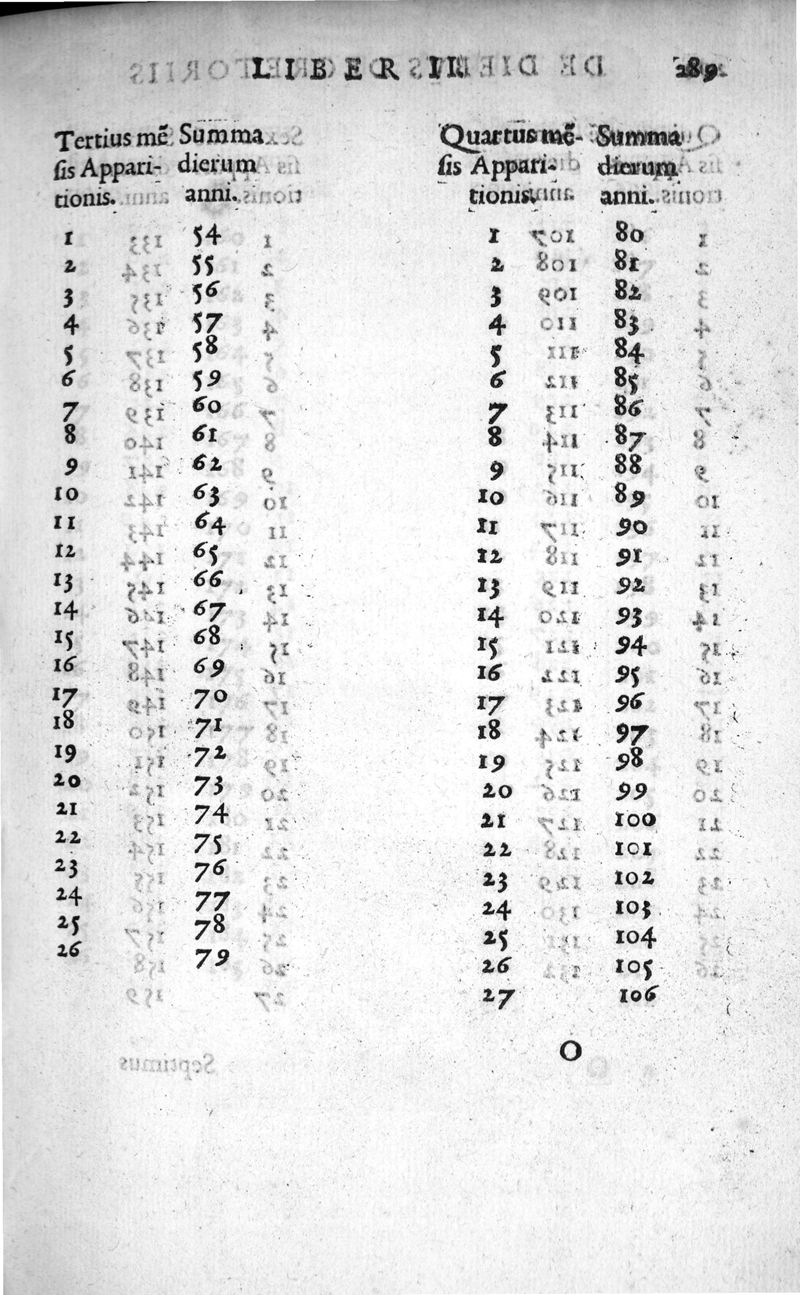 LIBER II. 289.
Tertius mē Summa
sis Appari- dierum
tionis. anni.
1 54
2 55
3 56
4 57
5 58
6 59
7 60
8 61
9 62
10 63
11 64
12 65
13 66
14 67
15 68
16 69
17 70
18 71
19 72
20 73
21 74
22 75
23 76
24 77
25 78
26 79
Quartus mē- Summa
sis Appari- dierum
tionis. anni.
1 80
2 81
3 82
4 83
5 84
6 85
7 86
8 87
9 88
10 89
11 90
12 91
13 92
14 93
15 94
16 95
17 96
18 97
19 98
20 99
21 100
22 101
23 102
24 103
25 104
26 105
27 106
O